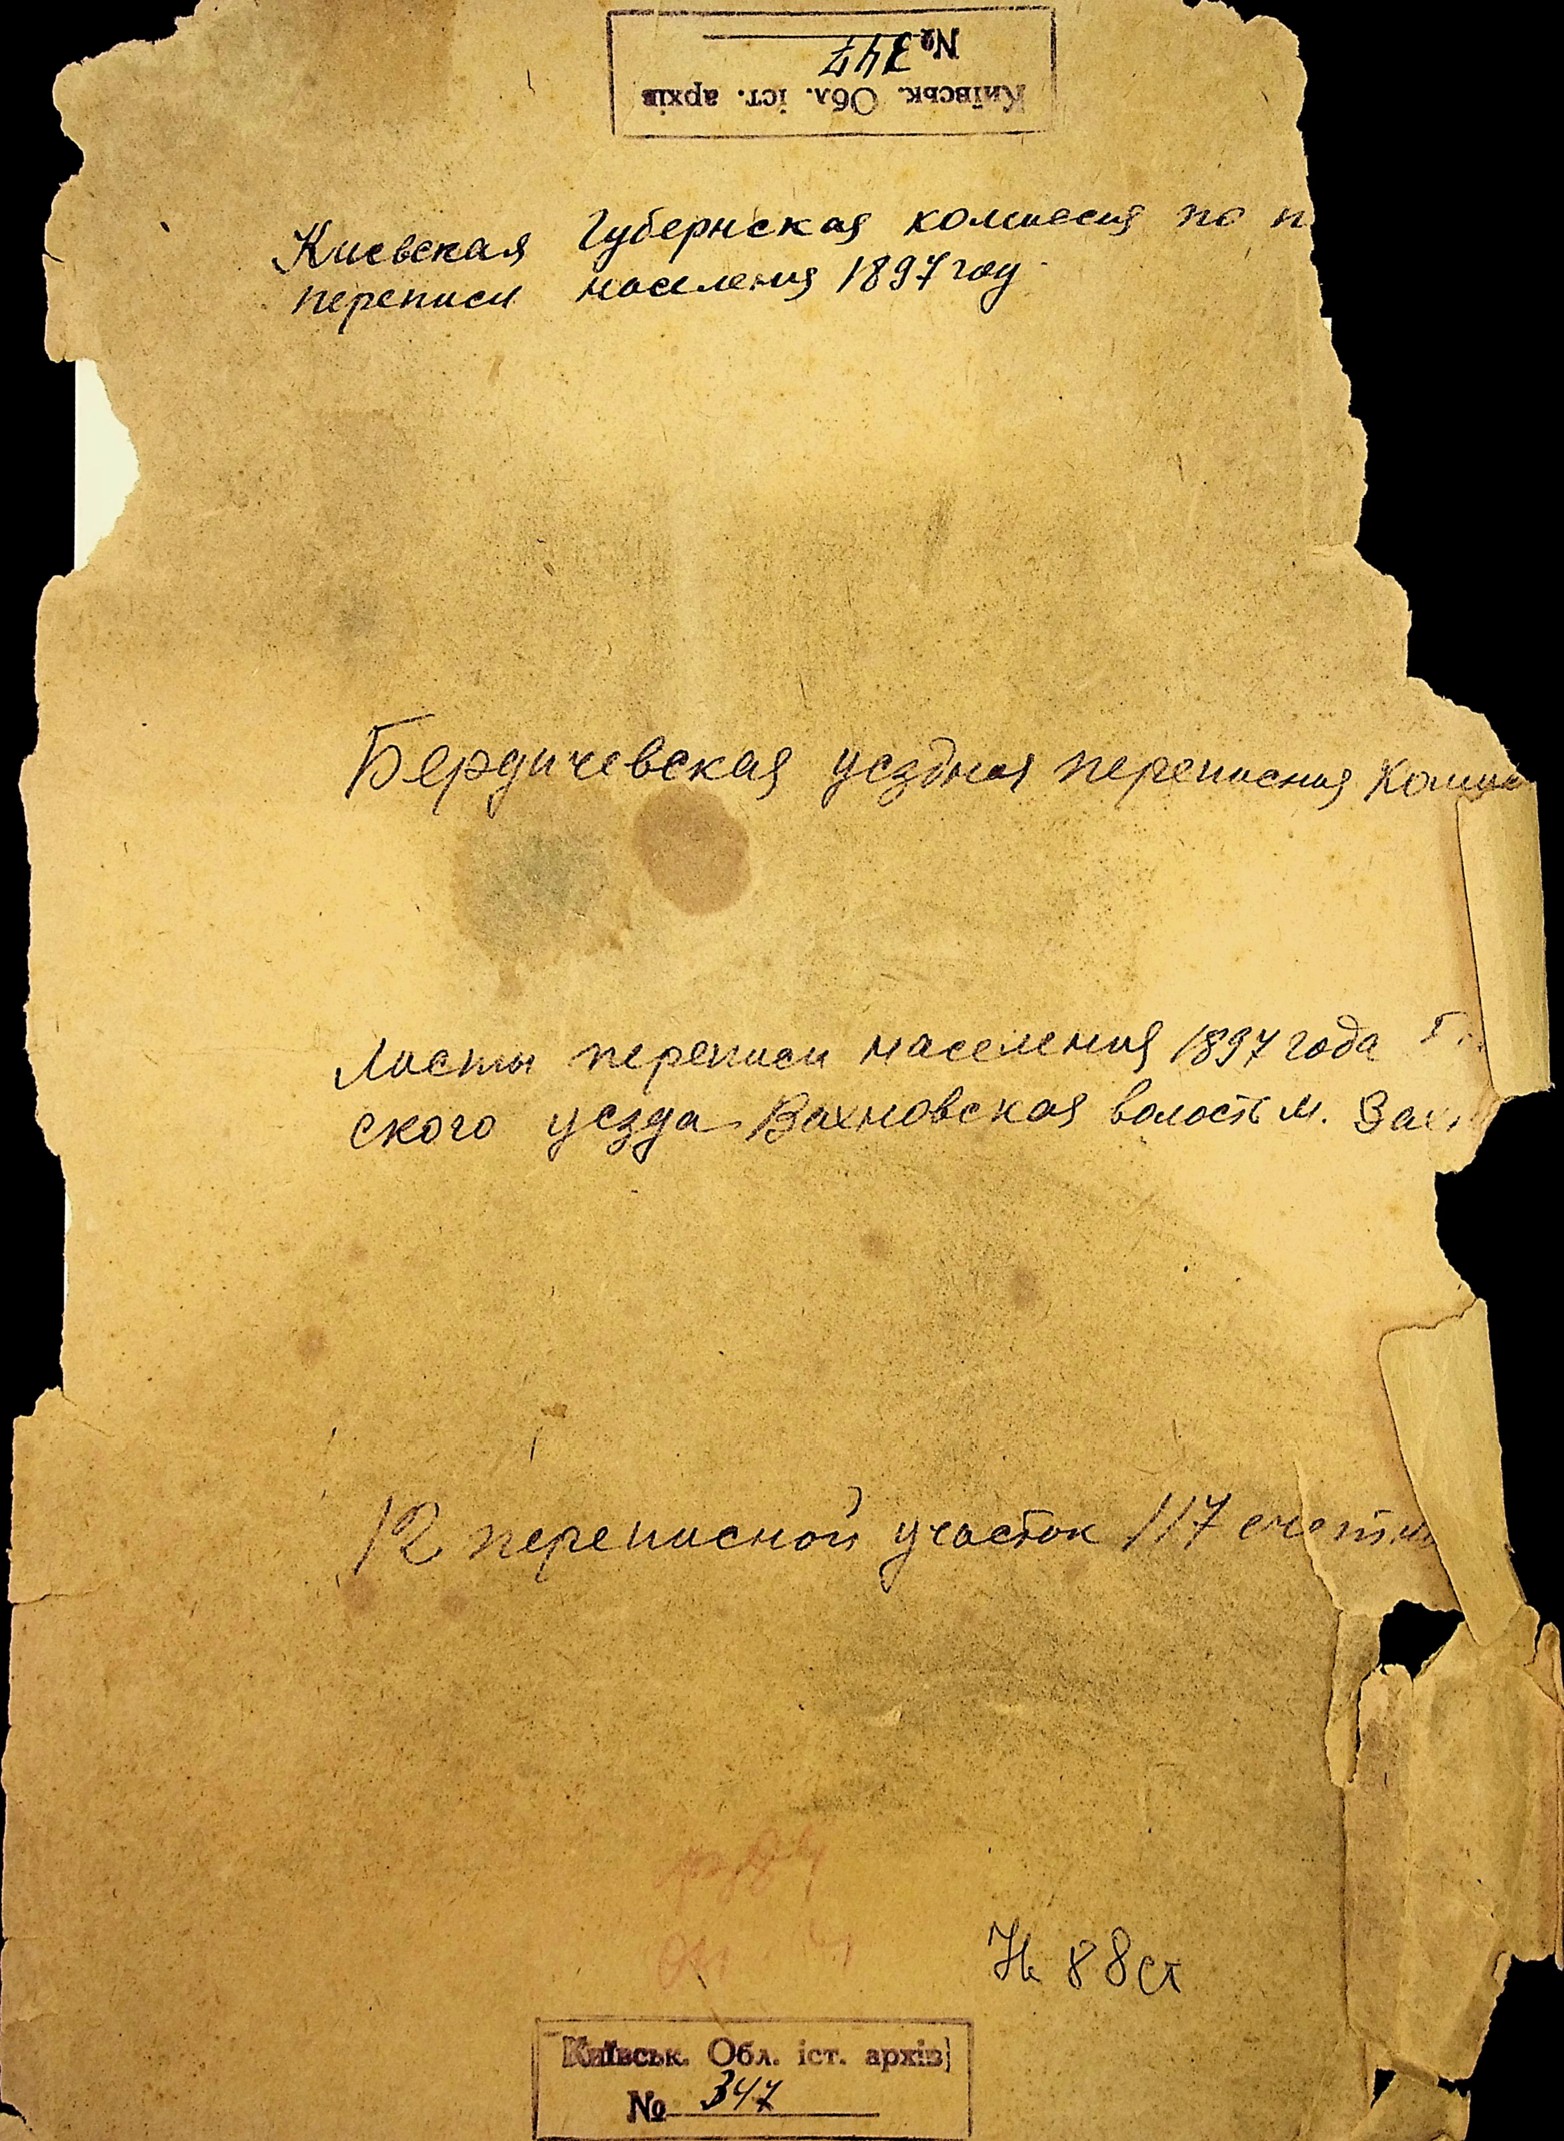 Київськ. Обл. іст. архів
№ 347
Киевская Губернская комиссия по п
переписи населения 1897 году
Бердичевская уездная переписная Комисс
Листы переписи населения 1897 года
ского уезда Вахновская волость м. Вахн
12 переписной участок 117 счетны
На 88 ст
Київськ. Обл. іст. архів
№ 347